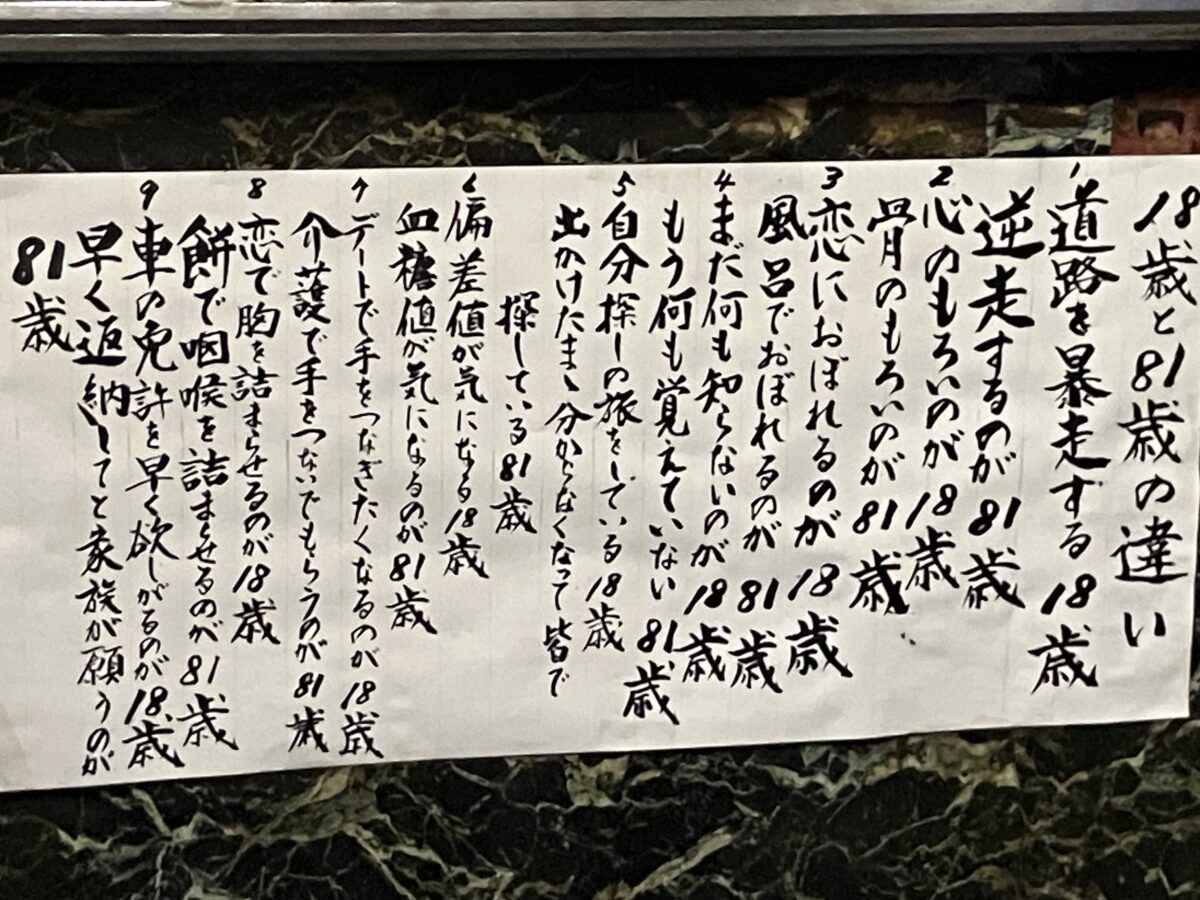 18歳と81歳の違い
1 道路を暴走する18歳
逆走するのが81歳
2 心のもろいのが18歳
骨のもろいのが81歳
3 恋におぼれるのが18歳
風呂でおぼれるのが81歳
4 まだ何も知らないのが18歳
もう何も覚えていない81歳
5 自分探しの旅をしている18歳
出かけたまゝ分からなくなって皆で
探している81歳
6 偏差値が気になる18歳
血糖値が気になるのが81歳
7 デートで手をつなぎたくなるのが18歳
介護で手をつないでもらうのが81歳
8 恋で胸を詰まらせるのが18歳
餅で咽喉を詰まらせるのが81歳
9 車の免許を早く欲しがるのが18歳
早く返納してと家族が願うのが
81歳